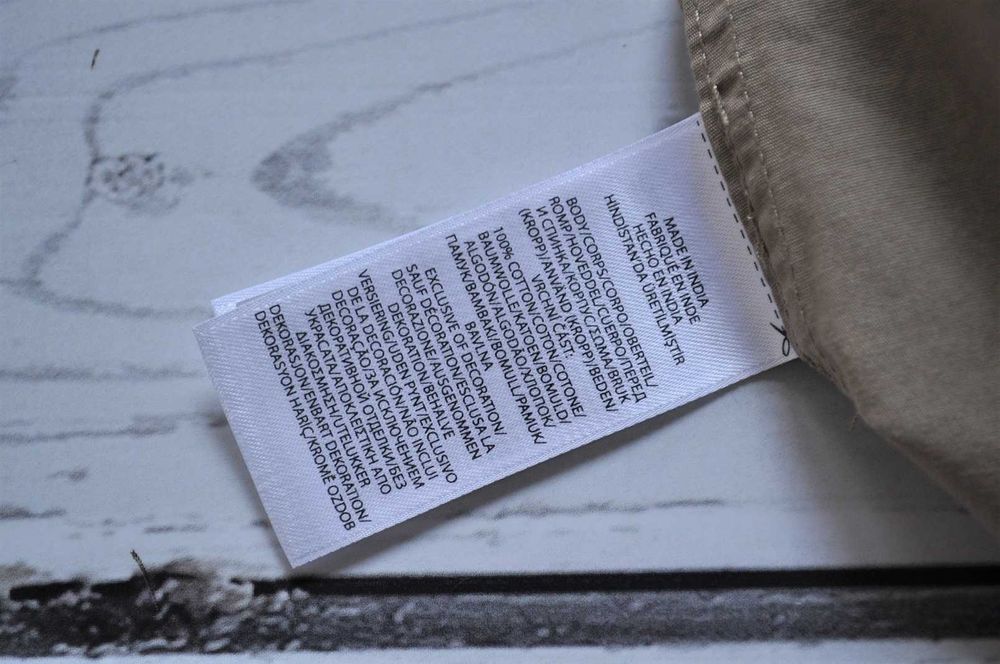 MADE IN INDIA
FABRIQUÉ EN INDE
HECHO EN INDIA
HİNDİSTAN'DA ÜRETİLMİŞTİR
BODY/CORPS/CORPO/OBERTEIL/
ROMP/HOVEDDEL/CUERPO/ПЕРЕД
И СПИНКА/КОРПУС/ΣΩΜΑ/BRUK
(KROPP)/ANVÄND (KROPP)/BEDEN/
VRCHNÍ ČÁST:
100% COTTON/COTON/COTONE/
BAUMWOLLE/KATOEN/BOMULD/
ALGODÓN/ALGODÃO/ХЛОПОК/
ПАМУК/ΒΑΜΒΑΚΙ/BOMULL/PAMUK/
BAVLNA
EXCLUSIVE OF DECORATION/
SAUF DÉCORATION/ESCLUSA LA
DECORAZIONE/AUSGENOMMEN
DEKORATION/BEHALVE
VERSIERING/UDEN PYNT/EXCLUSIVO
DE LA DECORACIÓN/NÃO INCLUI
DECORAÇÃO/ЗА ИСКЛЮЧЕНИЕМ
ДЕКОРАТИВНОЙ ОТДЕЛКИ/БЕЗ
УКРАСАТА/ΑΠΟΚΛΕΙΣΤΙΚΗ ΑΠΟ
ΔΙΑΚΟΣΜΗΣΗ/UTELUKKER
DEKORASJON/ENBART DEKORATION/
DEKORASYON HARİÇ/KROMĚ OZDOB